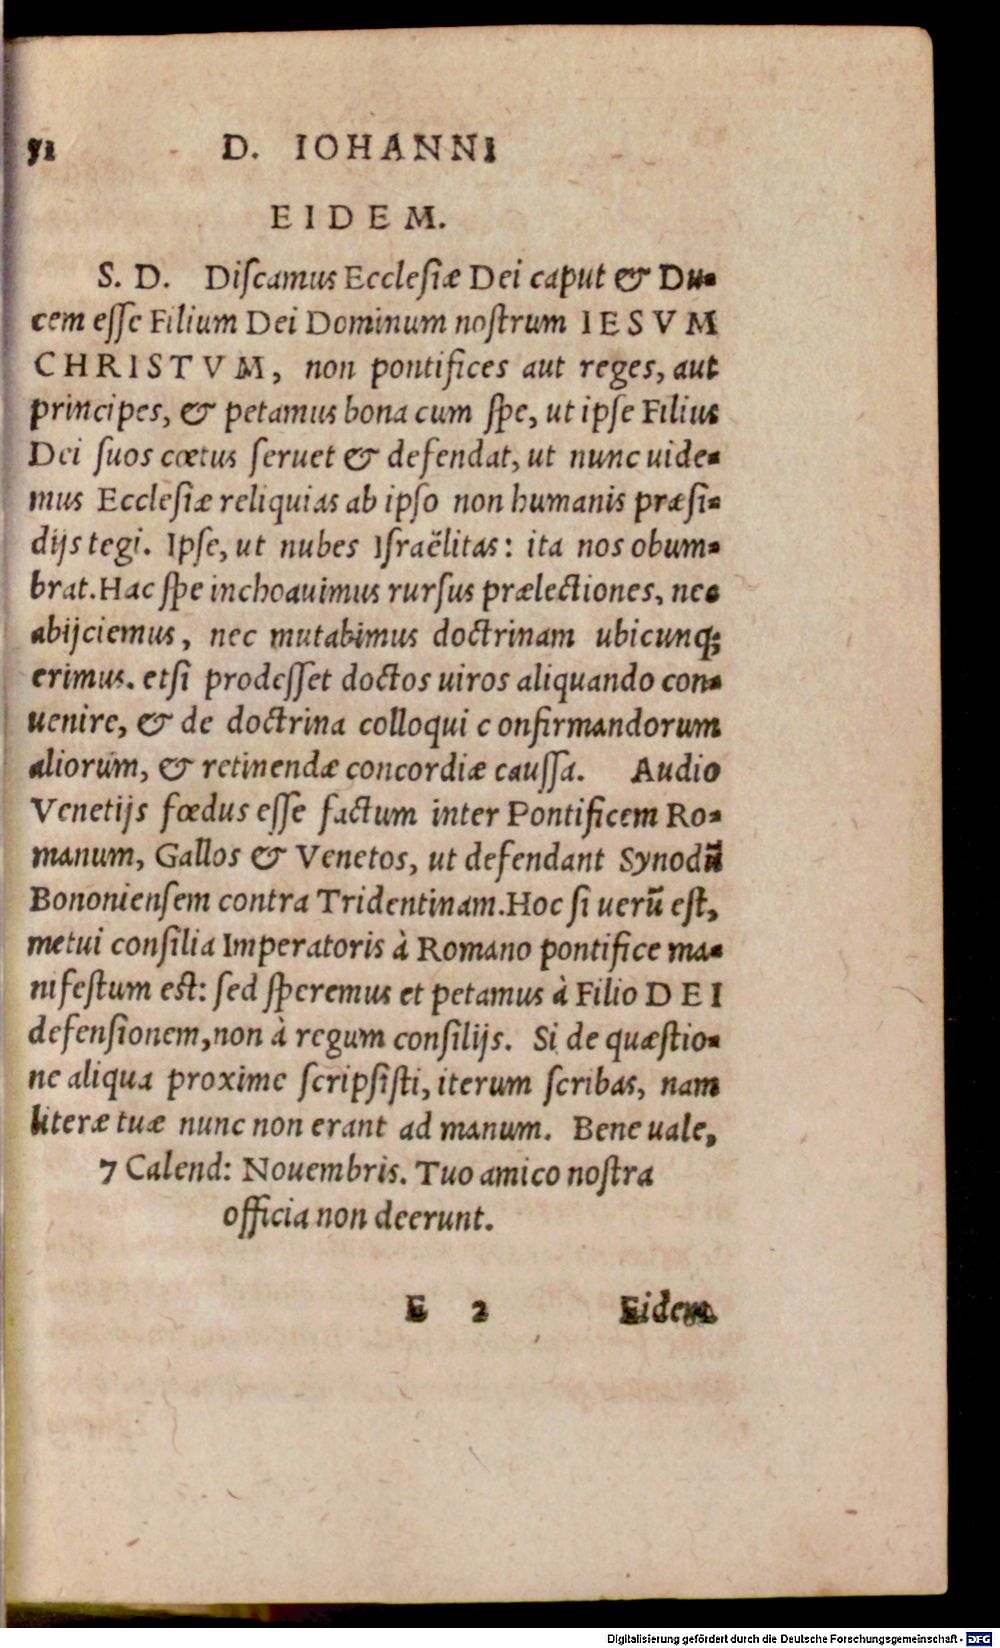 51 D. IOHANNI
EIDEM.
S. D. Diſcamus Eccleſiæ Dei caput & Du-
cem eſſe Filium Dei Dominum noſtrum IESVM
CHRISTVM, non pontifices aut reges, aut
principes, & petamus bona cum ſpe, ut ipſe Filius
Dei ſuos cœtus ſeruet & defendat, ut nunc uide-
mus Eccleſiæ reliquias ab ipſo non humanis præſi-
dijs tegi. Ipſe, ut nubes Iſraëlitas: ita nos obum-
brat. Hac ſpe inchoauimus rurſus prælectiones, nec
abijciemus, nec mutabimus doctrinam ubicunq;
erimus. etſi prodeſſet doctos uiros aliquando con-
uenire, & de doctrina colloqui confirmandorum
aliorum, & retinendæ concordiæ cauſſa. Audio
Venetijs fœdus eſſe factum inter Pontificem Ro-
manum, Gallos & Venetos, ut defendant Synodū
Bononienſem contra Tridentinam. Hoc ſi uerū eſt,
metui conſilia Imperatoris à Romano pontifice ma-
nifeſtum est: ſed ſperemus et petamus à Filio DEI
defenſionem, non à regum conſilijs. Si de quæſtio-
ne aliqua proxime ſcripſiſti, iterum ſcribas, nam
literæ tuæ nunc non erant ad manum. Bene uale,
7 Calend: Nouembris. Tuo amico noſtra
officia non deerunt.
E 2 Eidem
Digitalisierung gefördert durch die Deutsche Forschungsgemeinschaft - DFG